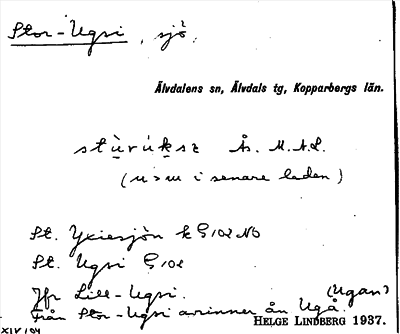 Stor-Ugsi, sjö.
Älvdalens sn, Älvdals tg, Kopparbergs län.
stùrúksı Ås. M.A.L.
(u > ɯ i senare leden)
St. Yxiesjön k G 102 NO
St. Ugsi G 102
Jfr Lill-Ugsi.
(Ugan)
Från Stor-Ugsi avrinner ån Ugå
HELGE LINDBERG 1937.
XIV 104